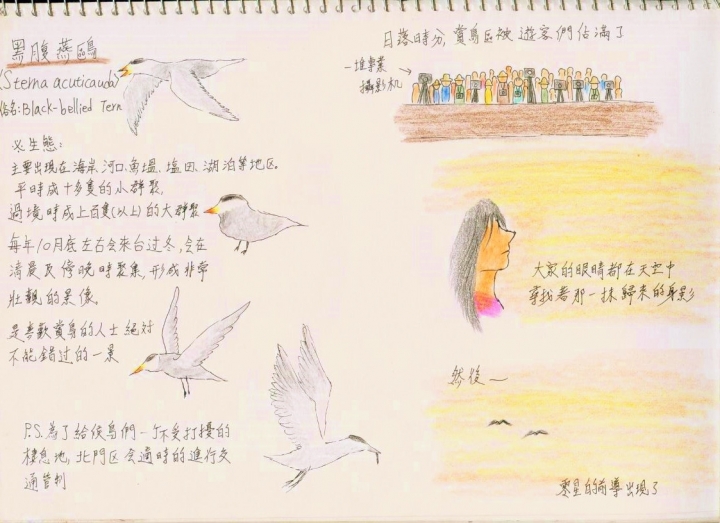 黑腹燕鷗
(Sterna acuticauda)
俗名:Black-bellied Tern
生態:
主要出現在海岸、河口、魚塭、塩田、湖泊等地区。
平時成十多隻的小群聚,
過境時成上百隻(以上)的大群聚
每年10月底左右会來台过冬,会在
清晨及傍晚時聚集,形成非常
壯觀的景像。
是喜歡賞鳥的人士絕对
不能錯过的一景
P.S.為了給候鳥們一个不受打擾的
棲息地,北門区会適時的進行交
通管制
日落時分,賞鳥區被遊客們佔滿了
一堆專業
攝影机
大家的眼睛都在天空中
尋找著那一抹歸來的身影
然後~
零星的前導出現了